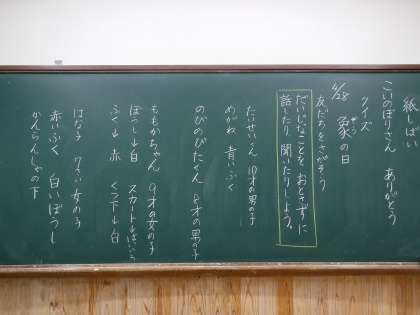 紙しばい
こいのぼりさん ありがとう
クイズ
4/28 象の日
ぞう
友だちをさがそう
だいじなことを おとさずに
話したり 聞いたりしよう。
たいせいくん 10才の男の子
めがね 青いふく
のびのびたくん 8才の男の子
ももかちゃん 9才の女の子
ぼうし→白 スカート→
ふく→赤 くつ下→白
はな子 7さい 女の子
赤いふく 白いぼうし
かんらんしゃの下